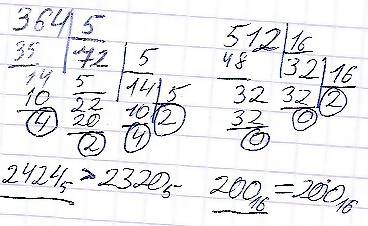 364 | 5          512 | 16
35   72 | 5      48   32 | 16
14   5   14 | 5   32   32   2
10   22  10   2   32   0
4    20  4        0
2
2424₅ > 2320₅   200₁₆ = 200₁₆